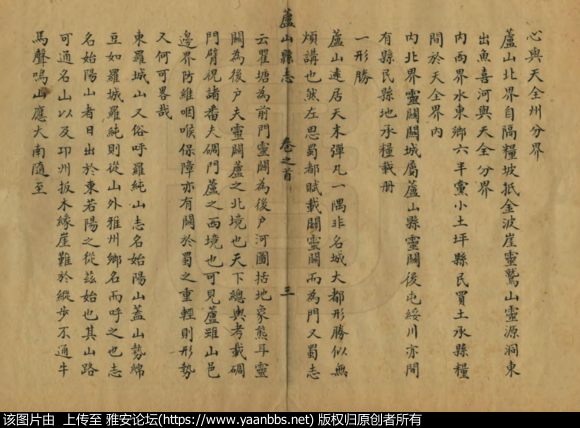 心與天全州分界
蘆山北界自隔糧坡抵金波崖靈鷲山靈源澗東
出魚喜河與天全分界
內西界水東鄉六年黨小土坪縣民買土承縣糧
間於天全界內
內北界靈關關城屬蘆山縣靈關後屯綏川亦間
有縣民縣地承糧載册
一形勝
蘆山遠居天末彈丸一隅非名城大都形勝似無
煩講也然左思蜀都賦載關靈關而為門又蜀志
蘆山縣志 卷之首 三
云瞿塘為前門靈關為後戶河圖括地象熊耳靈
關為後戶夫靈關蘆之北境也天下總輿考載碉
門臂視諸番夫碉門蘆之西境也可見蘆雖山邑
邊界防維咽喉保障亦有關於蜀之重輕則形勢
又何可畧哉
東羅城山又俗呼羅純山志名始陽山蓋山勢綿
亘如羅城羅純則從山外雅州鄉名而呼之也志
名始陽山者日出於東若陽之從茲始也其山路
可通名山以及邛州扳木緣崖難於縱步不通牛
馬聲鳴山應大南隨至
该图片由 上传至 雅安论坛(https://www.yaanbbs.net) 版权归原创者所有